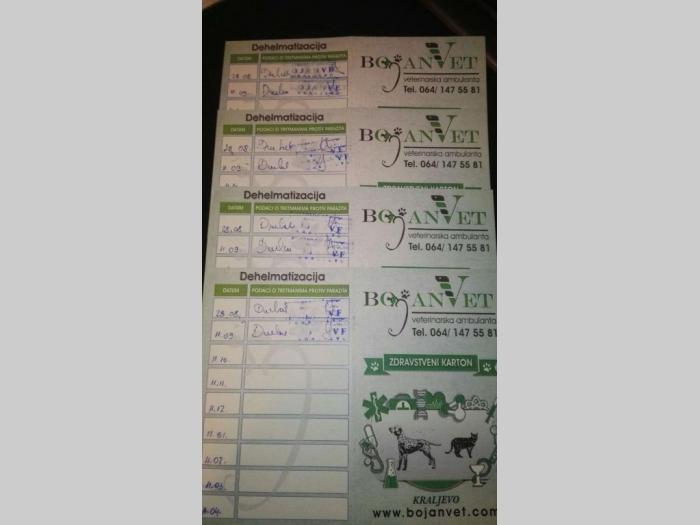 Dehelmatizacija
DATUM PODACI O TRETMANIMA PROTIV PARAZITA
28.08.
11.09.
BOJANVET
veterinarska ambulanta
Tel. 064/ 147 55 81
Dehelmatizacija
DATUM PODACI O TRETMANIMA PROTIV PARAZITA
28.08.
11.09.
BOJANVET
veterinarska ambulanta
Tel. 064/ 147 55 81
ZDRAVSTVENI KARTON
Dehelmatizacija
DATUM PODACI O TRETMANIMA PROTIV PARAZITA
28.08.
11.09.
BOJANVET
veterinarska ambulanta
Tel. 064/ 147 55 81
Dehelmatizacija
DATUM PODACI O TRETMANIMA PROTIV PARAZITA
28.08.
11.09.
11.10.
11.11.
11.12.
11.01.
11.02.
11.03.
11.04.
BOJANVET
veterinarska ambulanta
Tel. 064/ 147 55 81
ZDRAVSTVENI KARTON
KRALJEVO
www.bojanvet.com